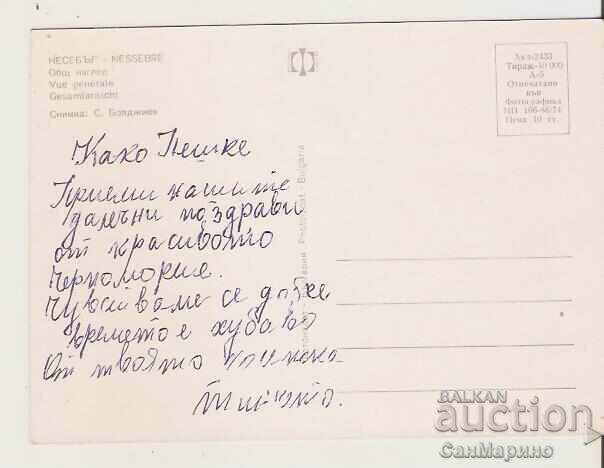 НЕСЕБЪР - NESSEBRE
Общ изглед
Vue générale
Gesamtansicht
Снимка: С. Бояджиев
Акл-2433
Тираж-50 000
Д-5
Отпечатано
във
Фотографика
Цена 10 ст.
Како Пешке
Приеми нашите
далечни поздрави
от красивото
Черноморие.
Чувстваме се добре
времето е хубаво
От твоята
Bulgaria
BALKAN
auction
СанМарино